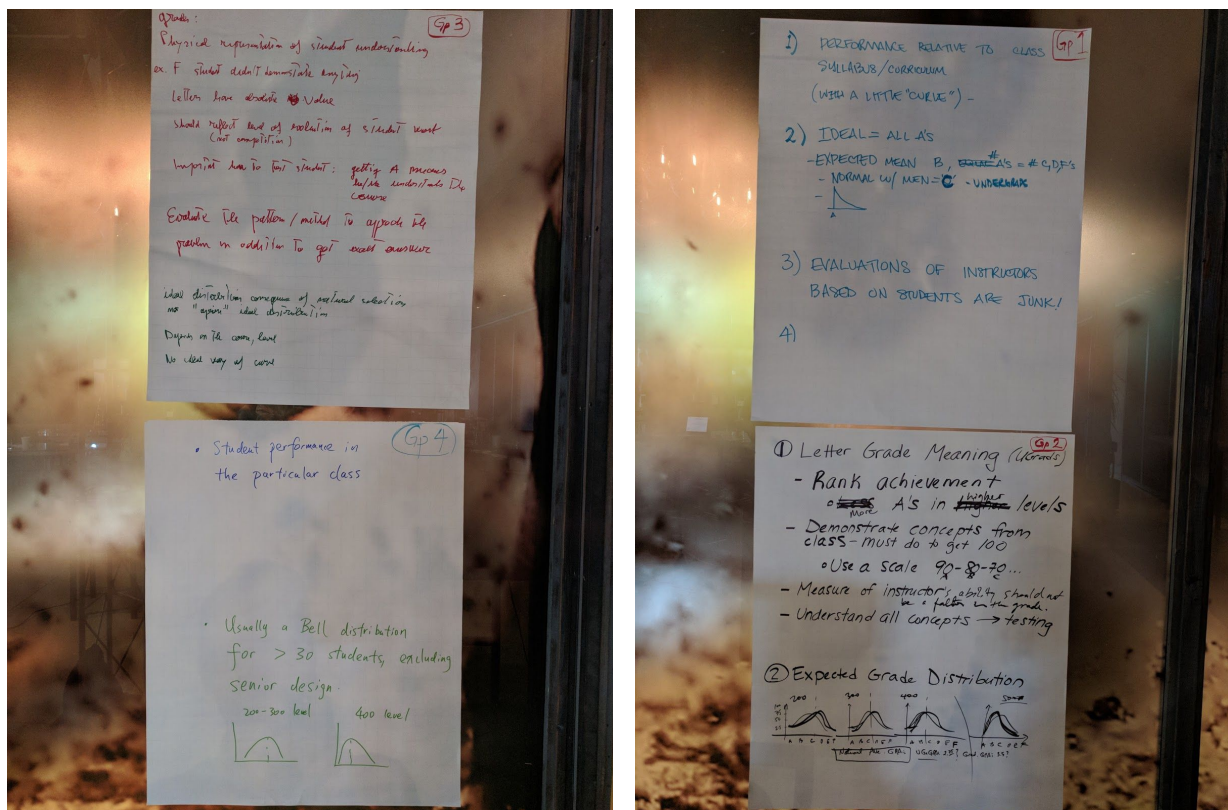 Gp 3
grades:
Physical representation of student understanding
ex. F student didn't demostrate anything
Letters have absolute value
Should reflect level of of student
(not competition)
Important how to test student: getting A means
he/she understands the
course
Evaluate the pattern/method to approch the
problem in addition to get exact answer
ideal distribution consequence of natural selection
no ideal distribution
Depends on the course, level
No ideal way of curve
Gp 4
• Student performance in
the particular class
• Usually a Bell distribution
for > 30 students, excluding
senior design.
200-300 level 400 level
Gp 1
1) PERFORMANCE RELATIVE TO CLASS
SYLLABUS/CURRICULUM
(WITH A LITTLE "CURVE") -
2) IDEAL = ALL A'S
- EXPECTED MEAN B, # A'S = # C,D,F'S
- NORMAL W/ MEN = "C" - UNDERGRADS
-
A
3) EVALUATIONS OF INSTRUCTORS
BASED ON STUDENTS ARE JUNK!
4)
Gp 2
① Letter Grade Meaning (UGrads)
- Rank achievement
◦ More A's in higher levels
- Demonstrate concepts from
class - must do to get 100
◦ Use a scale 90-80-70...
A B C
- Measure of instructor's ability should not
be a factor in the grade.
- Understand all concepts → testing
② Expected Grade Distribution
200 300 400
A B C D E F